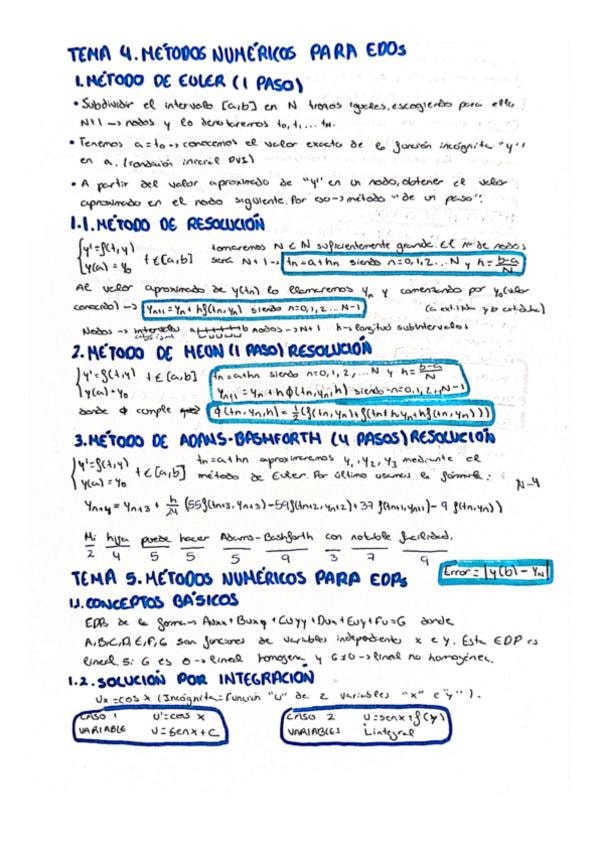 TEMA 4. METODOS NUMÉRICOS PARA EDOs
1. MÉTODO DE EULER (1 PASO)
• Subdividir el intervalo [a,b] en N tramos iguales, escogiendo para ello
N+1 → nodos y lo denotaremos t0, t1, ... tN.
• Tenemos a=t0 → conocemos el valor exacto de la función incógnita "y"
en a. (condición inicial PVI)
• A partir del valor aproximado de "y" en un nodo, obtener el valor
aproximado en el nodo siguiente. Por eso → método "de un paso".
1.1. MÉTODO DE RESOLUCIÓN
{y'=f(t,y) t∈[a,b] tomaremos N∈ℕ suficientemente grande. El nº de nodos
{y(a)=y0 será N+1 → tn=a+hn siendo n=0,1,2...N y h=(b-a)/N
Al valor aproximado de y(tn) lo llamaremos yn y comenzando por y0 (valor
conocido) → yn+1=yn+hf(tn,yn) siendo n=0,1,2...N-1
Nodos → intervalos a b nodos → N+1 h → longitud subintervalos
2. MÉTODO DE HEUN (1 PASO) RESOLUCIÓN
{y'=f(t,y) t∈[a,b] tn=a+hn siendo n=0,1,2,...N y h=(b-a)/N
{y(a)=y0 yn+1=yn+hϕ(tn,yn,h) siendo n=0,1,2...N-1
donde ϕ cumple ϕ(tn,yn,h)=1/2(f(tn,yn)+f(tn+h,yn+hf(tn,yn)))
3. MÉTODO DE ADAMS-BASHFORTH (4 PASOS) RESOLUCIÓN
{y'=f(t,y) t∈[a,b] tn=a+hn aproximaremos y1, y2, y3 mediante el
{y(a)=y0 método de Euler. Por último usamos la fórmula: N-4
yn+4=yn+3+ h/24 (55f(tn+3,yn+3)-59f(tn+2,yn+2)+37f(tn+1,yn+1)-9f(tn,yn))
Mi hija puede hacer Adams-Bashforth con notable facilidad.
2 4 5 5 5 9 3 7 9
Error = |y(b)-yN|
TEMA 5. MÉTODOS NUMÉRICOS PARA EDPs
1.1. CONCEPTOS BÁSICOS
EDPs de la forma → Auxx+Buxy+Cuyy+Dux+Euy+Fu=G donde
A,B,C,D,E,F,G son funciones de variables independientes x e y. Esta EDP es
lineal. Si G es 0 → lineal homogenea y G≠0 → lineal no homogénea.
1.2. SOLUCIÓN POR INTEGRACIÓN
Ux=cos x (Incógnita=función "U" de 2 variables "x" e "y").
CASO 1 U'=cos x
VARIABLE U=senx+C
CASO 2 U=senx+f(y)
VARIABLES integral